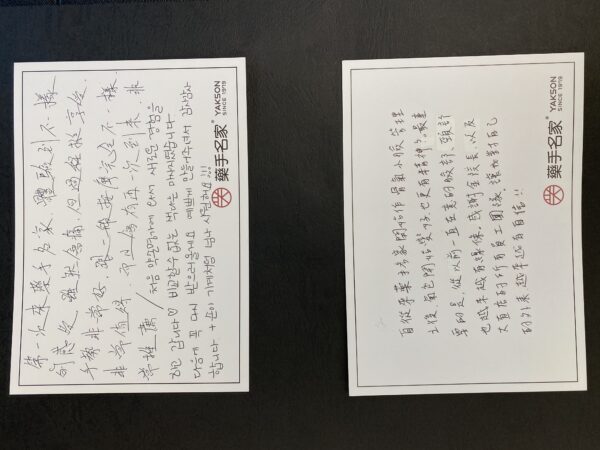 第一次來藥手名家,體驗到不一樣
的感受 雖然會痛,但過程很享受,
手勢非常好,跟一般按摩完全不一樣,
非常值得,而且會有再一次到來,非
常推薦 / 처음 약손명가에 와서 새로운 경험을
하고 갑니다♡ 비교할수 없는 마사지였습니다
다음에 꼭 다시 받으러올게요 예쁘게 만들어주셔서 감사감사
합니다 + 손이 기계처럼 넘나 시원해요!!!
藥手名家® YAKSON
SINCE 1979
自從來藥手名家開始作骨氣小臉管理
之後,氣色開始變好,也更有精神了。最重
要的是,從以前一直在意的臉部、頸部
也越來越有線條。感謝金院長,以及
大直店的所有員工團隊,讓我對自己
的外表越來越有自信!!
藥手名家® YAKSON
SINCE 1979